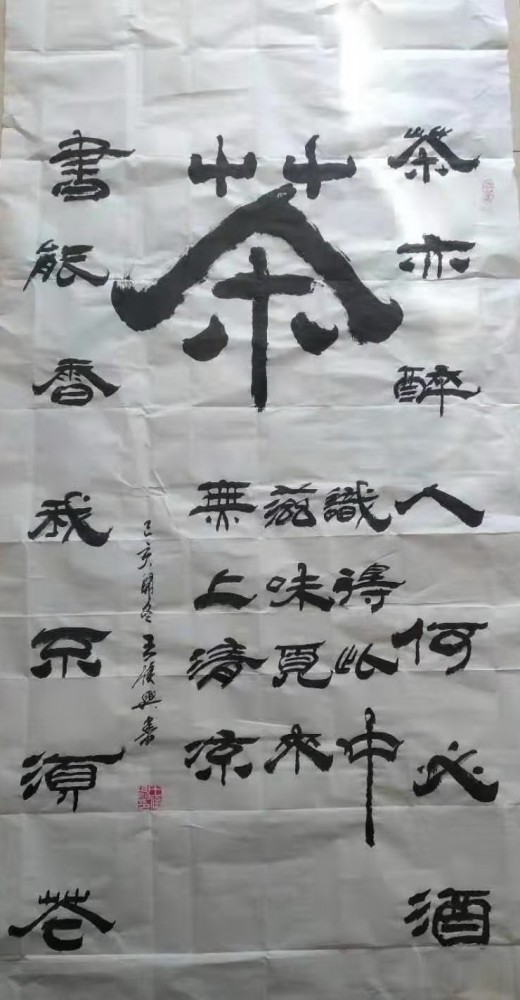 茶亦醉人何必酒
茶
識得此中
滋味覓來
無上清涼
己亥開冬王俊興書
書能香我不須花